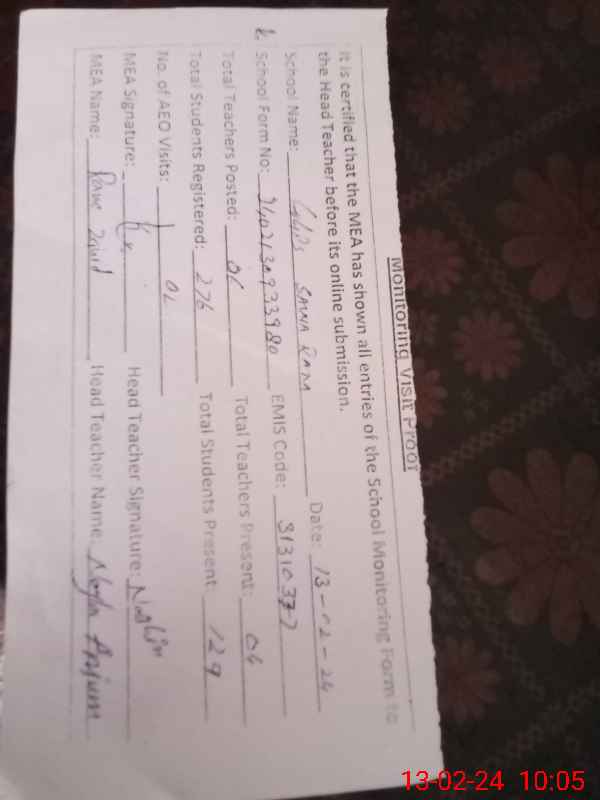 Monitoring Visit Proof
It is certified that the MEA has shown all entries of the School Monitoring Form to
the Head Teacher before its online submission.
Date: 13-02-24
School Name: SAWA RAM
School Form No: EMIS Code: 31310377
Total Teachers Posted: 06 Total Teachers Present: 06
Total Students Registered: 276 Total Students Present: 129
No. of AEO Visits: 02
MEA Signature: Head Teacher Signature:
MEA Name: Head Teacher Name: Anjum
13-02-24 10:05